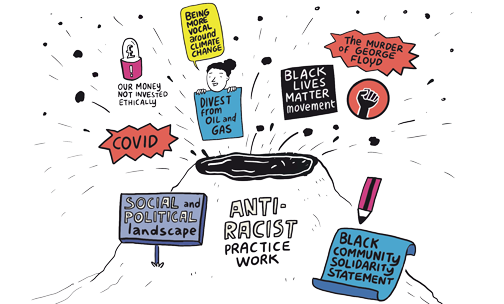 BEING
MORE
VOCAL
around
CLIMATE
CHANGE
£
OUR MONEY
NOT INVESTED
ETHICALLY
DIVEST
from
OIL and
GAS
BLACK
LIVES
MATTER
movement
The MURDER
of GEORGE
FLOYD
COVID
SOCIAL and
POLITICAL
landscape
ANTI-
RACIST
PRACTICE
WORK
BLACK
COMMUNITY
SOLIDARITY
STATEMENT